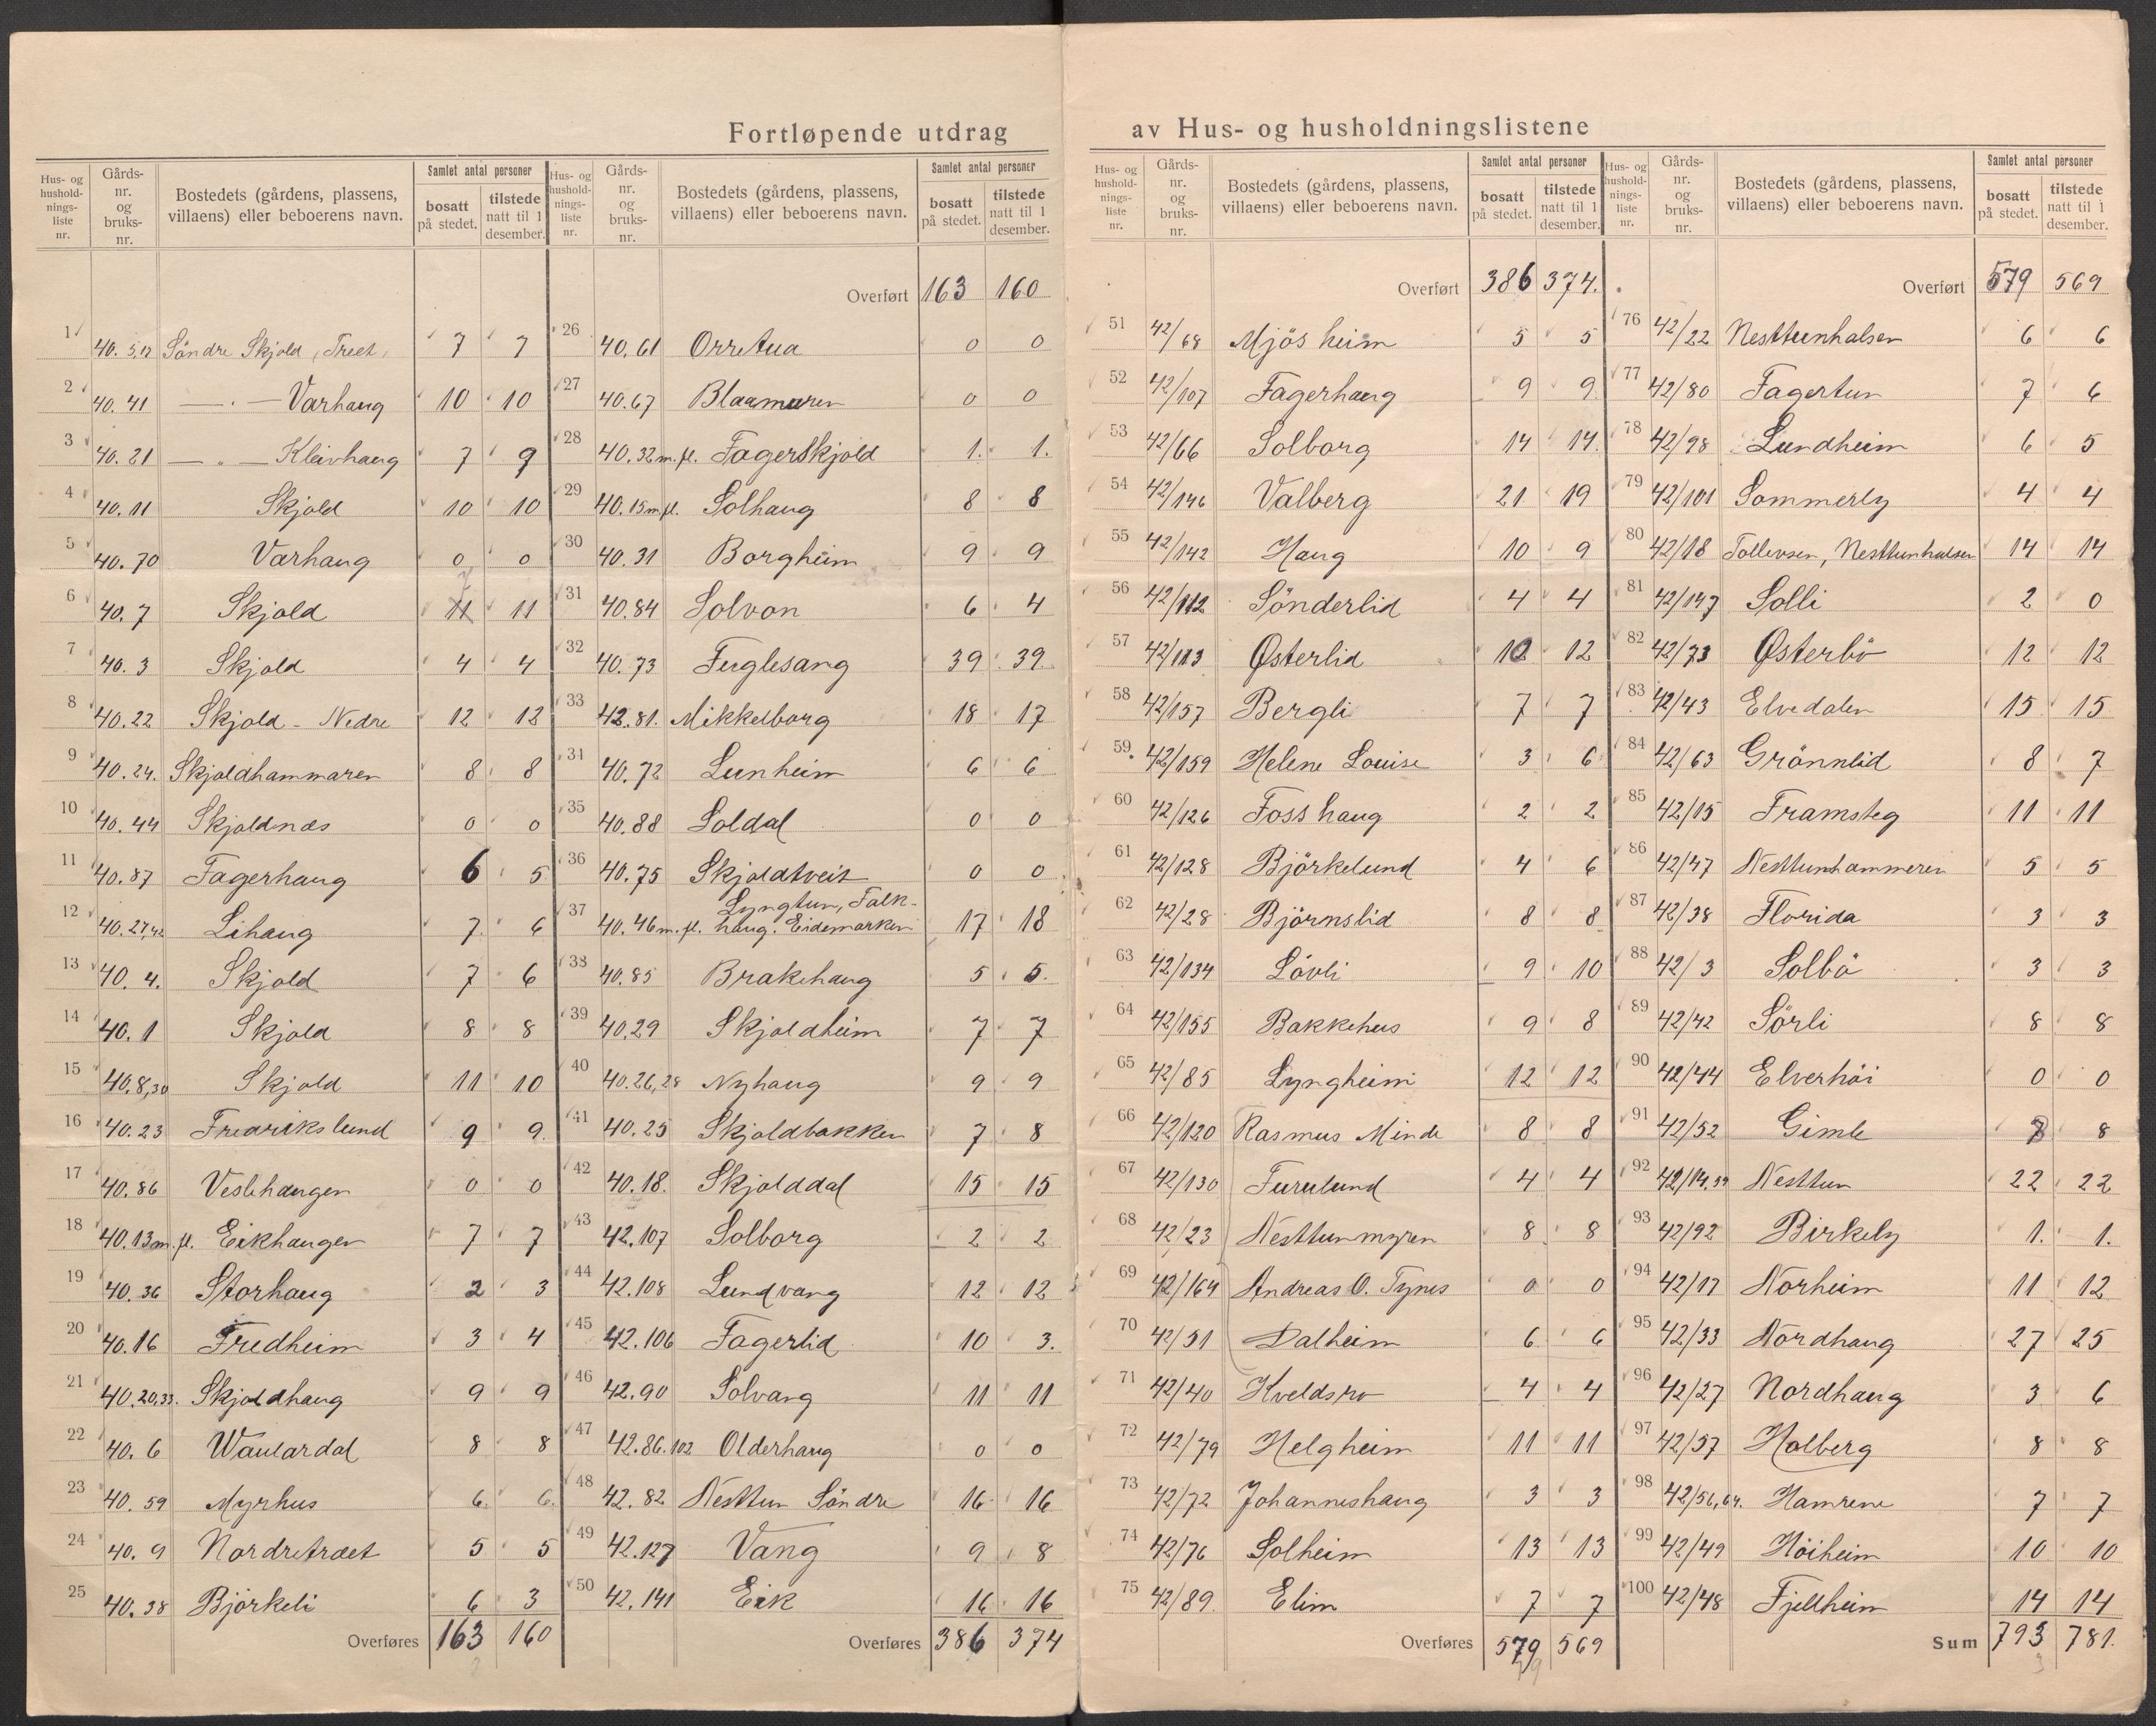 Fortløpende utdrag av Hus- og husholdningslistene
Hus- og husholdnings-liste nr. | Gårds-nr. og bruks-nr. | Bostedets (gårdens, plassens, villaens) eller beboerens navn. | Samlet antal personer | bosatt på stedet. | tilstede natt til 1 desember.
1 40. 5,17 Söndre Skjold, Treet, 7 7
2 40. 41 — " — Varhaug 10 10
3 40. 21 — " — Kleivhaug 7 9
4 40. 11 Skjold 10 10
5 40. 70 Varhaug 0 0
6 40. 7 Skjold 11 11
7 40. 3 Skjold 4 4
8 40. 22 Skjold - Nedre 12 12
9 40. 24. Skjoldhammaren 8 8
10 40. 44 Skjoldnes 0 0
11 40. 87 Fagerhaug 6 5
12 40. 27,42 Lihaug 7 6
13 40. 4. Skjold 7 6
14 40. 1 Skjold 8 8
15 40. 8,30 Skjold 11 10
16 40. 23 Fredrikslund 9 9
17 40. 86 Veslehaugen 0 0
18 40. 13 m. fl. Eikhaugen 7 7
19 40. 36 Storhaug 2 3
20 40. 16 Fredheim 3 4
21 40. 20,33. Skjoldhaug 9 9
22 40. 6 Waulardal 8 8
23 40. 59 Myrhus 6 6
24 40. 9 Nordretraet 5 5
25 40. 38 Björkeli 6 3
Overføres 163 160
Hus- og husholdnings-liste nr. | Gårds-nr. og bruks-nr. | Bostedets (gårdens, plassens, villaens) eller beboerens navn. | Samlet antal personer | bosatt på stedet. | tilstede natt til 1 desember.
Overført 163 160
26 40. 61 Orretua 0 0
27 40. 67 Blaamuren 0 0
28 40. 32 m. fl. Fagerskjold 1. 1.
29 40. 15 m. fl. Solhaug 8 8
30 40. 31 Borgheim 9 9
31 40. 84 Solvon 6 4
32 40. 73 Fuglesang 39 39
33 42. 81. Mikkelborg 18 17
31 40. 72 Lunheim 6 6
35 40. 88 Soldal 0 0
36 40. 75 Skjoldtveit 0 0
37 40. 46 m. fl. Lyngtun, Falk-
haug. Eidemarken 17 18
38 40. 85 Brakehaug 5 5.
39 40. 29 Skjoldheim 7 7
40 40. 26,28 Nyhaug 9 9
41 40. 25 Skjoldbakken 7 8
42 40. 18. Skjolddal 15 15
43 42. 107 Solborg 2 2
44 42. 108 Lundvang 12 12
45 42. 106 Fagerlid 10 3.
46 42. 90 Solvang 11 11
47 42. 86. 102 Olderhaug 0 0
48 42. 82 Nesttun Söndre 16 16
49 42. 127 Vang 9 8
50 42. 141 Eik 16 16
Overføres 386 374
Hus- og husholdnings-liste nr. | Gårds-nr. og bruks-nr. | Bostedets (gårdens, plassens, villaens) eller beboerens navn. | Samlet antal personer | bosatt på stedet. | tilstede natt til 1 desember.
Overført 386 374.
51 42/68 Mjös heim 5 5
52 42/107 Fagerhaug 9 9
53 42/66 Solborg 14 14
54 42/146 Valberg 21 19
55 42/142 Haug 10 9
56 42/112 Sönderlid 4 4
57 42/113 Østerlid 10 12
58 42/157 Bergli 7 7
59 42/159 Helene Louise 3 6
60 42/126 Foss haug 2 2
61 42/128 Björkelund 4 6
62 42/28 Björnslid 8 8
63 42/134 Lövli 9 10
64 42/155 Bakkehus 9 8
65 42/85 Lyngheim 12 12
66 42/120 Rasmus Minde 8 8
67 42/130 Furulund 4 4
68 42/23 Nesttunmyren 8 8
69 42/164 Andreas O. Tynes 0 0
70 42/51 Dalheim 6 6
71 42/40 Kveldsro 4 4
72 42/79 Helgheim 11 11
73 42/72 Johanneshaug 3 3
74 42/76 Solheim 13 13
75 42/89. Elim 7 7
Overføres 579 569
Hus- og husholdnings-liste nr. | Gårds-nr. og bruks-nr. | Bostedets (gårdens, plassens, villaens) eller beboerens navn. | Samlet antal personer | bosatt på stedet. | tilstede natt til 1 desember.
Overført 579 569
76 42/22 Nesttunhalsen 6 6
77 42/80 Fagertun 7 6
78 42/98 Lundheim 6 5
79 42/101 Sommerly 4 4
80 42/18 Tollevsen, Nesttunhalsen 14 14
81 42/147 Solli 2 0
82 42/73 Østerbö 12 12
83 42/43 Elvedalen 15 15
84 42/63 Grönnlid 8 7
85 42/15 Framsteg 11 11
86 42/47 Nesttunhammeren 5 5
87 42/38 Florida 3 3
88 42/3 Solbö 3 3
89 42/42 Sörli 8 8
90 42/44 Elverhöi 0 0
91 42/52 Gimle 8 8
92 42/14.39 Nesttun 22 22
93 42/92 Birkely 1. 1.
94 42/17 Norheim 11 12
95 42/33 Nordhaug 27 25
96 42/27 Nordhaug 3 6
97 42/57 Holberg 8 8
98 42/56,64. Hamrene 7 7
99 42/49 Höiheim 10 10
100 42/48 Fjellheim 14 14
Sum 793 781.